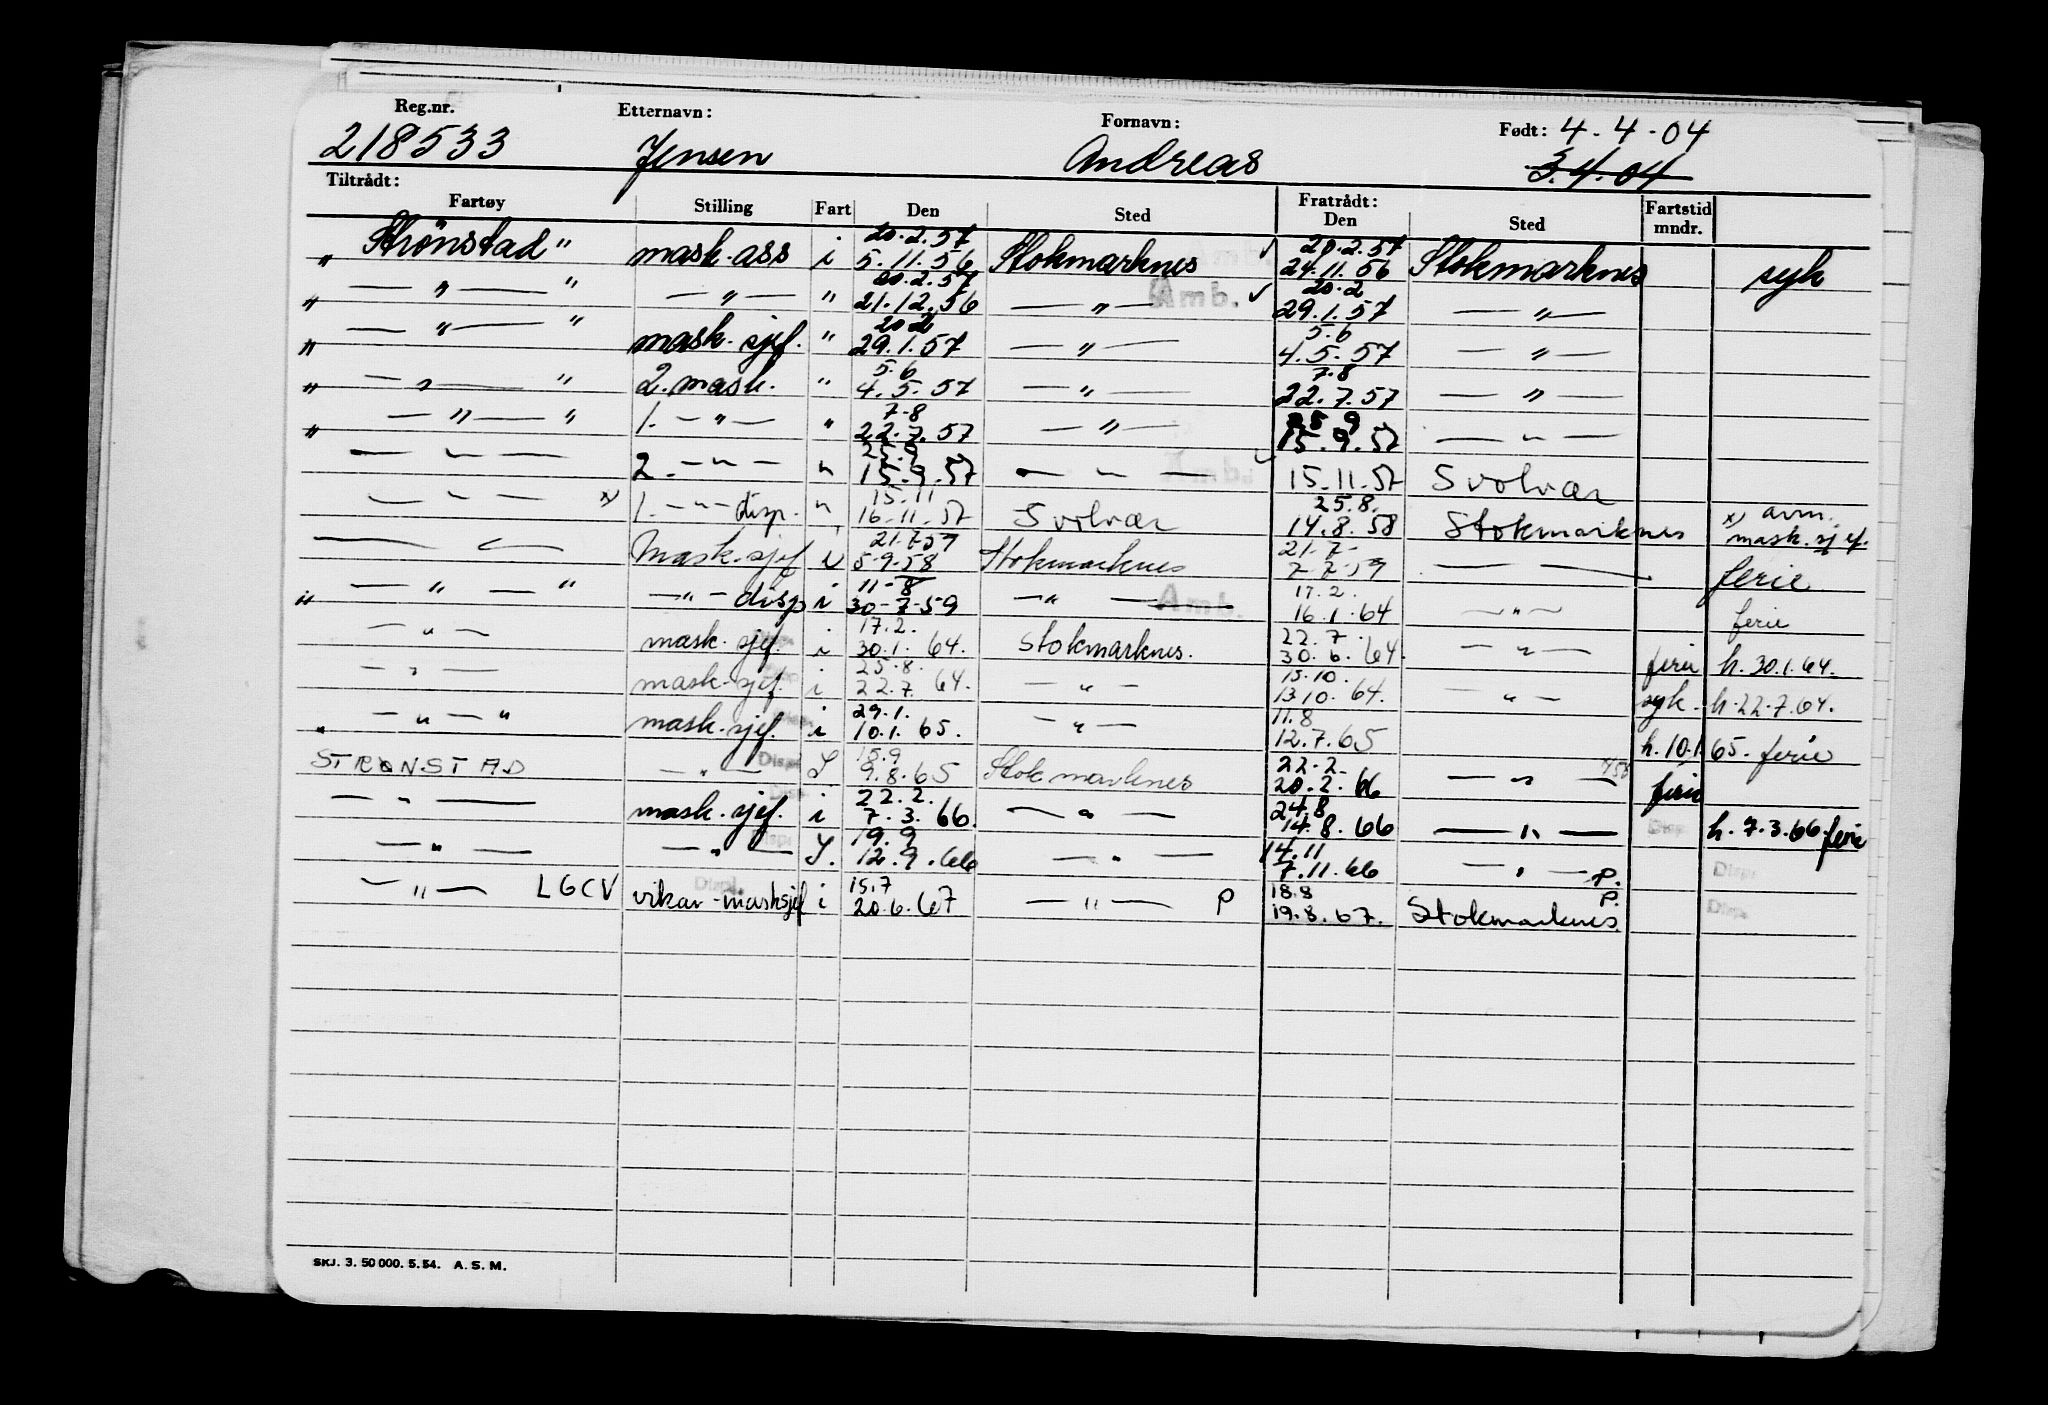 Reg.nr. Etternavn: Fornavn: Født: 4-4-04
218533 Jensen Andreas 3.4.04
Tiltrådt: Fratrådt:
Fartøy Stilling Fart Den Sted Den Sted Fartstid mndr.
20.2.57 20.2.57
" Strønstad" mask.ass i 5.11.56 Stokmarknes ✓ 24.11.56 Stokmarknes syk
20.2.57 Amb. 20.2
" — " — " — " — " 21.12.56 — " — ✓ 29.1.57 — " —
20.2 5.6
" — " — " mask.sjef. " 29.1.57 — " — 4.5.57 — " —
5.6 7.8
" — " — " 2.mask. " 4.5.57 — " — 22.7.57 — " —
7-8 25.9
" — " — " 1. — " — " 22.7.57 — " — 15.9.57 — " —
25.9
— " — 2. — " — " 15.9.57 — " — Amb. 15.11.57 Svolvær
15.11 25.8.
— " — x) 1. — " — disp. " 16.11.57 Svolvær 14.8.58 Stokmarknes x) avm. mask.sjef.
21.7.57 21.7-
— " — Mask.sjef i 5-9-58 Stokmarknes 7-7-59 — — ferie
11-8 17.2.
" — " — " — " — disp i 30-7-59 — " — Amb. 16.1.64 — " — ferie
17.2. 22.7.
— " — mask.sjef. i 30.1.64. Stokmarknes. 30.6.64. — " — ferie h.30.1.64.
25.8. 15.10.
— " — mask.sjef. i 22.7.64. — " — 13.10.64. — " — syk. h.22.7.64.
29.1. 11.8
" — " — " mask.sjef. i 10.1.65. — " — 12.7.65 h.10.1.65. ferie
Disp. 15.9 22.2
STRØNSTAD — " — I 9.8.65 Stokmarknes 20.2.66 — " — ferie
22.2. 24.8
— " — mask.sjef. i 7.3.66. — " — 14.8.66 — " — Disp. h.7.3.66.ferie
Disp. 19.9 14.11
— " — — " — I. 12.9.66 — " — 7.11.66 — " — P. Disp.
Disp. 15.7 18.8 P.
— " — LGCV vikar-masksjef i 20.6.67 — " — P 19.8.67. Stokmarknes. Disp.
SKJ. 3. 50 000. 5. 54. A. S. M.